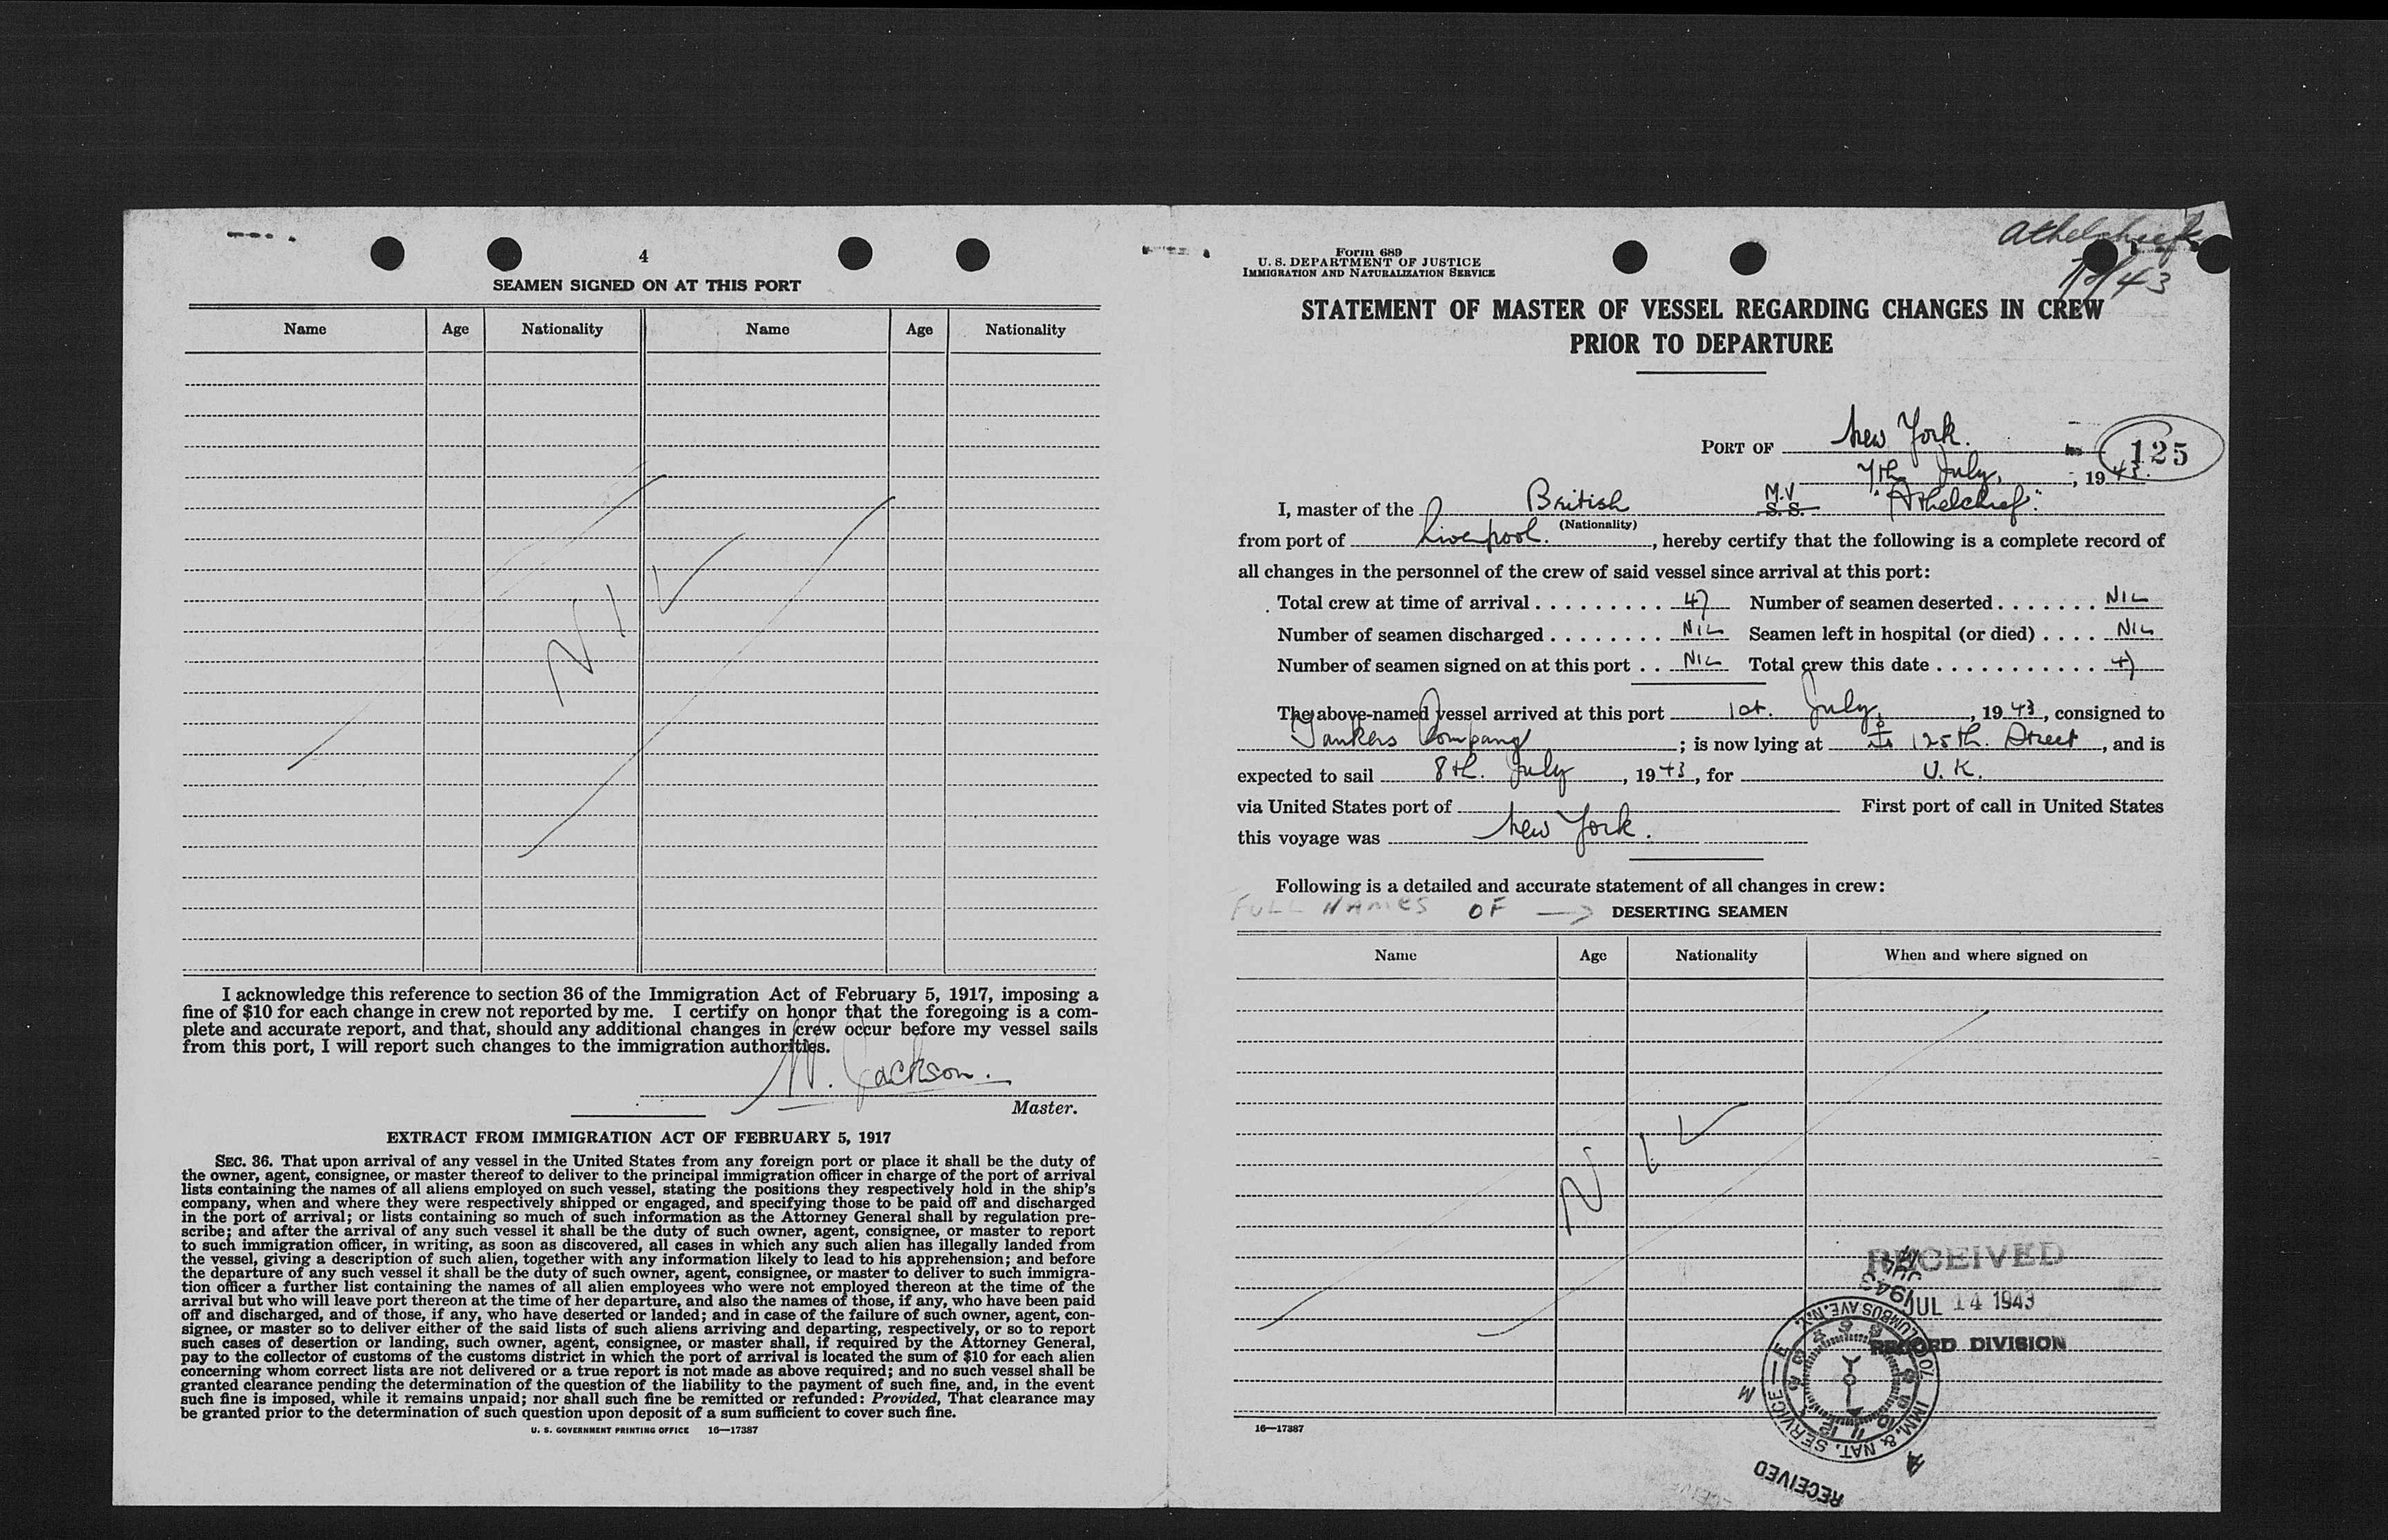 4
SEAMEN SIGNED ON AT THIS PORT
Name Age Nationality Name Age Nationality
NIL
I acknowledge this reference to section 36 of the Immigration Act of February 5, 1917, imposing a
fine of $10 for each change in crew not reported by me. I certify on honor that the foregoing is a com-
plete and accurate report, and that, should any additional changes in crew occur before my vessel sails
from this port, I will report such changes to the immigration authorities.
W. Jackson.
Master.
EXTRACT FROM IMMIGRATION ACT OF FEBRUARY 5, 1917
SEC. 36. That upon arrival of any vessel in the United States from any foreign port or place it shall be the duty of
the owner, agent, consignee, or master thereof to deliver to the principal immigration officer in charge of the port of arrival
lists containing the names of all aliens employed on such vessel, stating the positions they respectively hold in the ship's
company, when and where they were respectively shipped or engaged, and specifying those to be paid off and discharged
in the port of arrival; or lists containing so much of such information as the Attorney General shall by regulation pre-
scribe; and after the arrival of any such vessel it shall be the duty of such owner, agent, consignee, or master to report
to such immigration officer, in writing, as soon as discovered, all cases in which any such alien has illegally landed from
the vessel, giving a description of such alien, together with any information likely to lead to his apprehension; and before
the departure of any such vessel it shall be the duty of such owner, agent, consignee, or master to deliver to such immigra-
tion officer a further list containing the names of all alien employees who were not employed thereon at the time of the
arrival but who will leave port thereon at the time of her departure, and also the names of those, if any, who have been paid
off and discharged, and of those, if any, who have deserted or landed; and in case of the failure of such owner, agent, con-
signee, or master so to deliver either of the said lists of such aliens arriving and departing, respectively, or so to report
such cases of desertion or landing, such owner, agent, consignee, or master shall, if required by the Attorney General,
pay to the collector of customs of the customs district in which the port of arrival is located the sum of $10 for each alien
concerning whom correct lists are not delivered or a true report is not made as above required; and no such vessel shall be
granted clearance pending the determination of the question of the liability to the payment of such fine, and, in the event
such fine is imposed, while it remains unpaid; nor shall such fine be remitted or refunded: Provided, That clearance may
be granted prior to the determination of such question upon deposit of a sum sufficient to cover such fine.
U. S. GOVERNMENT PRINTING OFFICE 16—17387
Athelchief
Form 689
U. S. DEPARTMENT OF JUSTICE
IMMIGRATION AND NATURALIZATION SERVICE
STATEMENT OF MASTER OF VESSEL REGARDING CHANGES IN CREW
PRIOR TO DEPARTURE
PORT OF New York. 125
7th July, , 19 43.
I, master of the British M.V S. S. "Athelchief."
(Nationality)
from port of Liverpool. , hereby certify that the following is a complete record of
all changes in the personnel of the crew of said vessel since arrival at this port:
Total crew at time of arrival . . . . . . . . . 47 Number of seamen deserted . . . . . . . NIL
Number of seamen discharged . . . . . . . . NIL Seamen left in hospital (or died) . . . . NIL
Number of seamen signed on at this port . . NIL Total crew this date . . . . . . . . . . . 47
The above-named vessel arrived at this port 1st. July, , 19 43 , consigned to
Tankers Company ; is now lying at 125th. Street , and is
expected to sail 8th. July , 19 43 , for U. K.
via United States port of First port of call in United States
this voyage was New York.
Following is a detailed and accurate statement of all changes in crew:
FULL NAMES OF → DESERTING SEAMEN
Name Age Nationality When and where signed on
NIL
RECEIVED
JUL 14 1943
RECORD DIVISION
1943
COLUMBUS AVE. N.Y.
IMM. & NAT. SERVICE
RECEIVED
16—17387